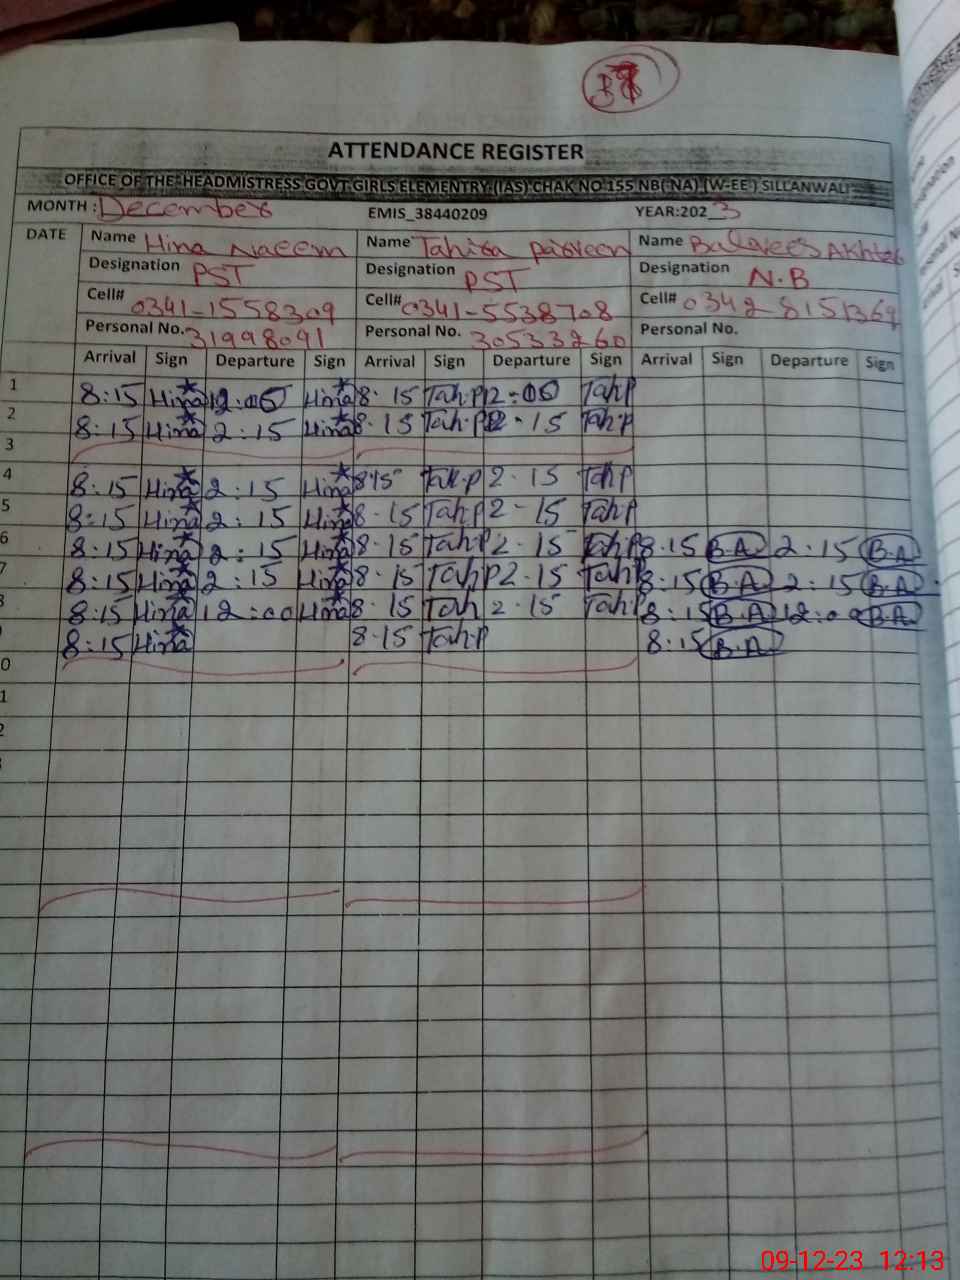 ATTENDANCE REGISTER
OFFICE OF THE HEADMISTRESS GOVT GIRLS ELEMENTRY (IAS) CHAK NO 155 NB( NA) (W-EE ) SILLANWALI
MONTH : December EMIS_38440209 YEAR:202_3
DATE Name Hina Naeem Name Tahira Parveen Name Balqees Akhtar
Designation PST Designation PST Designation N.B
Cell# 0341-1558309 Cell# 0341-5538708 Cell# 0342 8151369
Personal No. 31998091 Personal No. 30533260 Personal No.
Arrival Sign Departure Sign Arrival Sign Departure Sign Arrival Sign Departure Sign
1 8:15 Hina 12:00 Hina 8.15 Tah.P 12.00 Tah.P
2 8:15 Hina 2:15 Hina 8.15 Tah.P 2.15 Tah.P
3
4 8:15 Hina 2:15 Hina 8.15 Tah.P 2.15 Tah.P
5 8:15 Hina 2:15 Hina 8.15 Tah.P 2.15 Tah.P
6 8:15 Hina 2:15 Hina 8.15 Tah.P 2.15 Tah.P 8.15 B.A 2:15 B.A
7 8:15 Hina 2:15 Hina 8.15 Tah.P 2.15 Tah.P 8:15 B.A 2:15 B.A
8:15 Hina 12:00 Hina 8.15 Tah 2.15 Tah.P 8:15 B.A 12:00 B.A
8:15 Hina 8.15 Tah.P 8:15 B.A
0
1
2
09-12-23 12:13